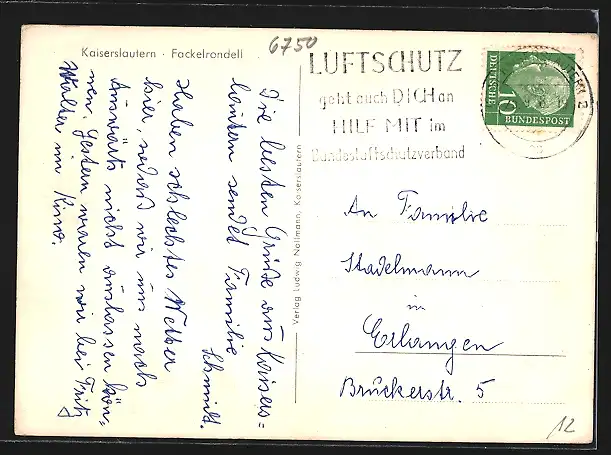 Kaiserslautern · Fackelrondell
6750
LUFTSCHUTZ
geht auch DICH an
HILF MIT im
Bundesluftschutzverband
DEUTSCHE
BUNDESPOST
10
Die besten Grüße aus Kaisers=
lautern sendet Familie
Schmidt.
Haben schlechtes Wetter
hier, sodass wir uns nach
Auswärts nicht auslassen kön-
nen. Gestern waren wir bei Fritz
Walter im Kino.
Verlag Ludwig Nollmann, Kaiserslautern
An Familie
Stadelmann
in
Erlangen
Bruckerstr. 5
12